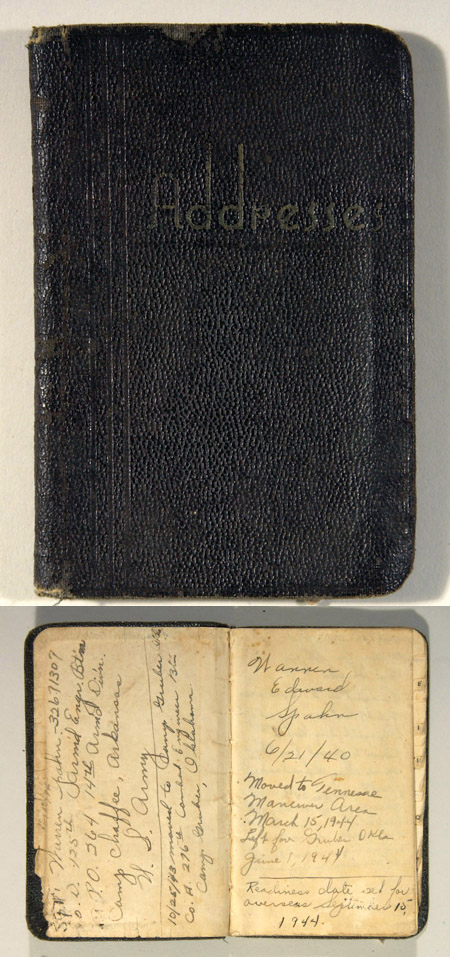 Addresses
Warren Spahn - 32671307
Co. D. 125th Armd Engr. Btn
A.P.O. 364 14th Armd Divn.
Camp Chaffee, Arkansas
U. S. Army
10/28/43 moved to Camp Gruber
Co. A. 276th Combat Engineer
Camp Gruber, Oklahoma
Warren
Edward
Spahn
6/21/40
Moved to Tennessee
Maneuver Area
March 15, 1944
Left for Gruber Okla
June 1, 1944
Readiness date set for
overseas September 15,
1944.